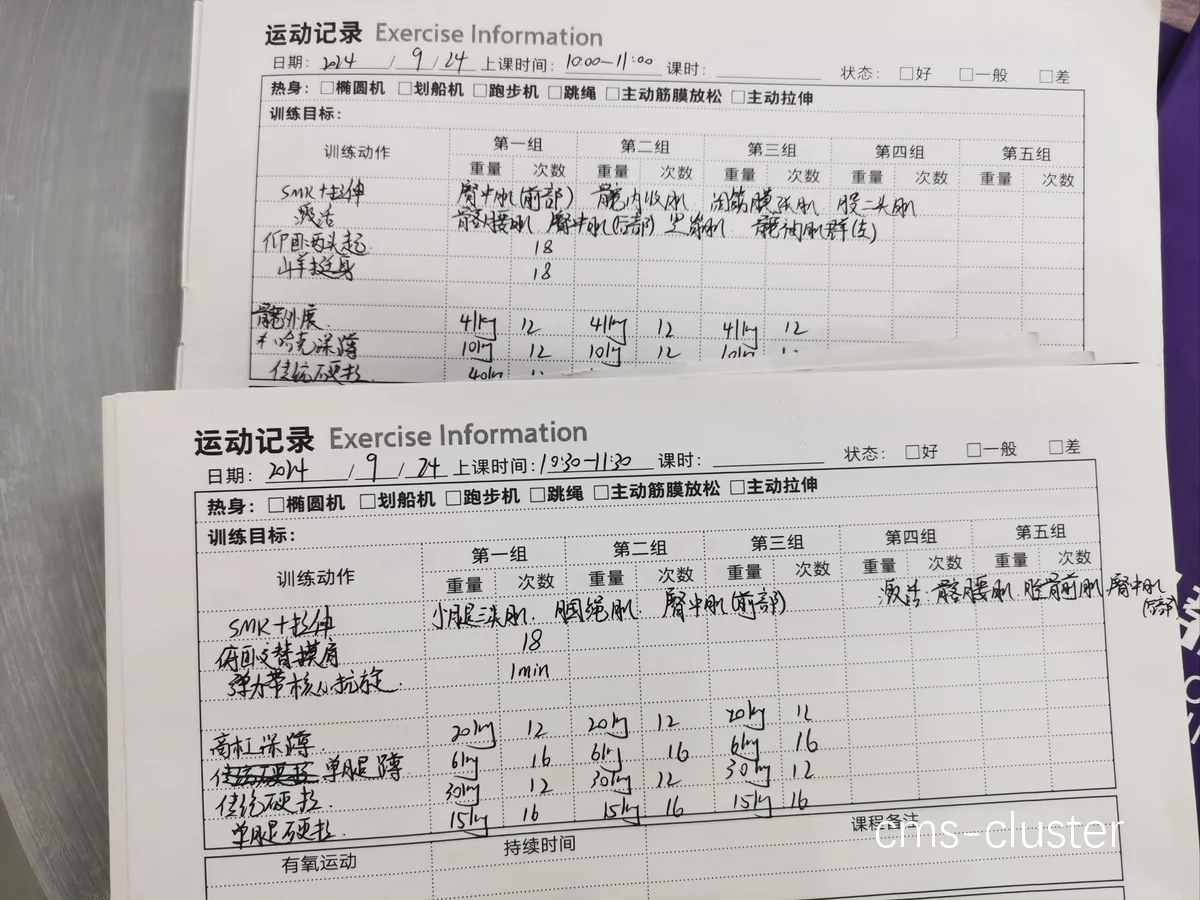 运动记录 Exercise Information
日期: 2024 / 9 / 24 上课时间: 10:00-11:00 课时: 状态: □好 □一般 □差
热身: □椭圆机 □划船机 □跑步机 □跳绳 □主动筋膜放松 □主动拉伸
训练目标:
训练动作 第一组 第二组 第三组 第四组 第五组
重量 次数 重量 次数 重量 次数 重量 次数 重量 次数
SMR+拉伸 臀中肌(前部) 髋内收肌 阔筋膜张肌 股二头肌
激活 髂腰肌 臀中肌(后部) 髋油肌群(左)
仰卧两头起 18
山羊挺身 18
髋外展 41kg 12 41kg 12 41kg 12
* 哈克深蹲 10kg 12 10kg 12 10kg
传统硬拉 40kg
运动记录 Exercise Information
日期: 2024 / 9 / 24 上课时间: 10:30-11:30 课时: 状态: □好 □一般 □差
热身: □椭圆机 □划船机 □跑步机 □跳绳 □主动筋膜放松 □主动拉伸
训练目标:
训练动作 第一组 第二组 第三组 第四组 第五组
重量 次数 重量 次数 重量 次数 重量 次数 重量 次数
SMR+拉伸 小腿三头肌 腘绳肌 臀中肌(前部) 激活: 髂腰肌 胫骨前肌 臀中肌
(后部)
俯卧交替摸肩 18
弹力带核心抗旋 1min
高杠深蹲 20kg 12 20kg 12 20kg 12
传统硬拉 单腿蹲 6kg 16 6kg 16 6kg 16
传统硬拉 30kg 12 30kg 12 30kg 12
单腿硬拉 15kg 16 15kg 16 15kg 16
有氧运动 持续时间 课程备注
cms-cluster